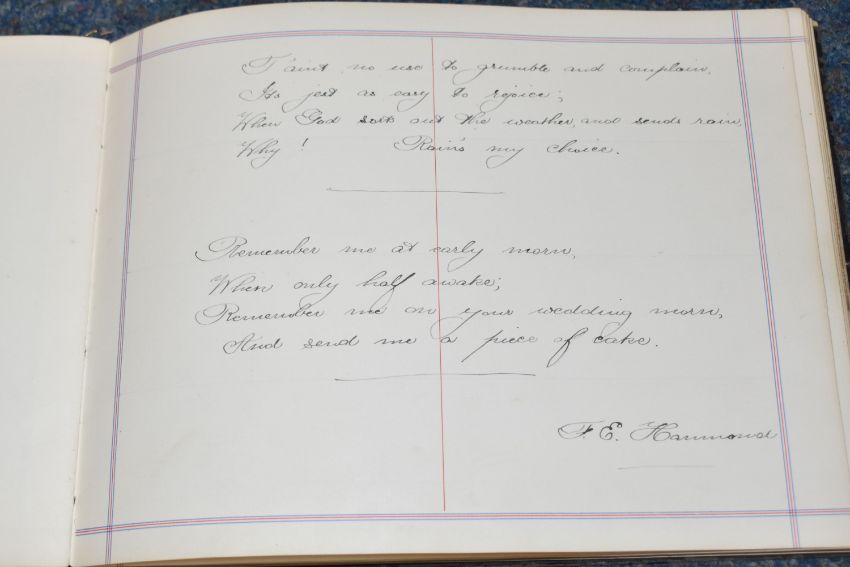 T'aint no use to grumble and complain,
Its jest as easy to rejoice;
When God sorts out the weather, and sends rain,
Why! Rain's my choice.
Remember me at early morn,
When only half awake;
Remember me on your wedding morn,
And send me a piece of cake.
F. E. Hammond